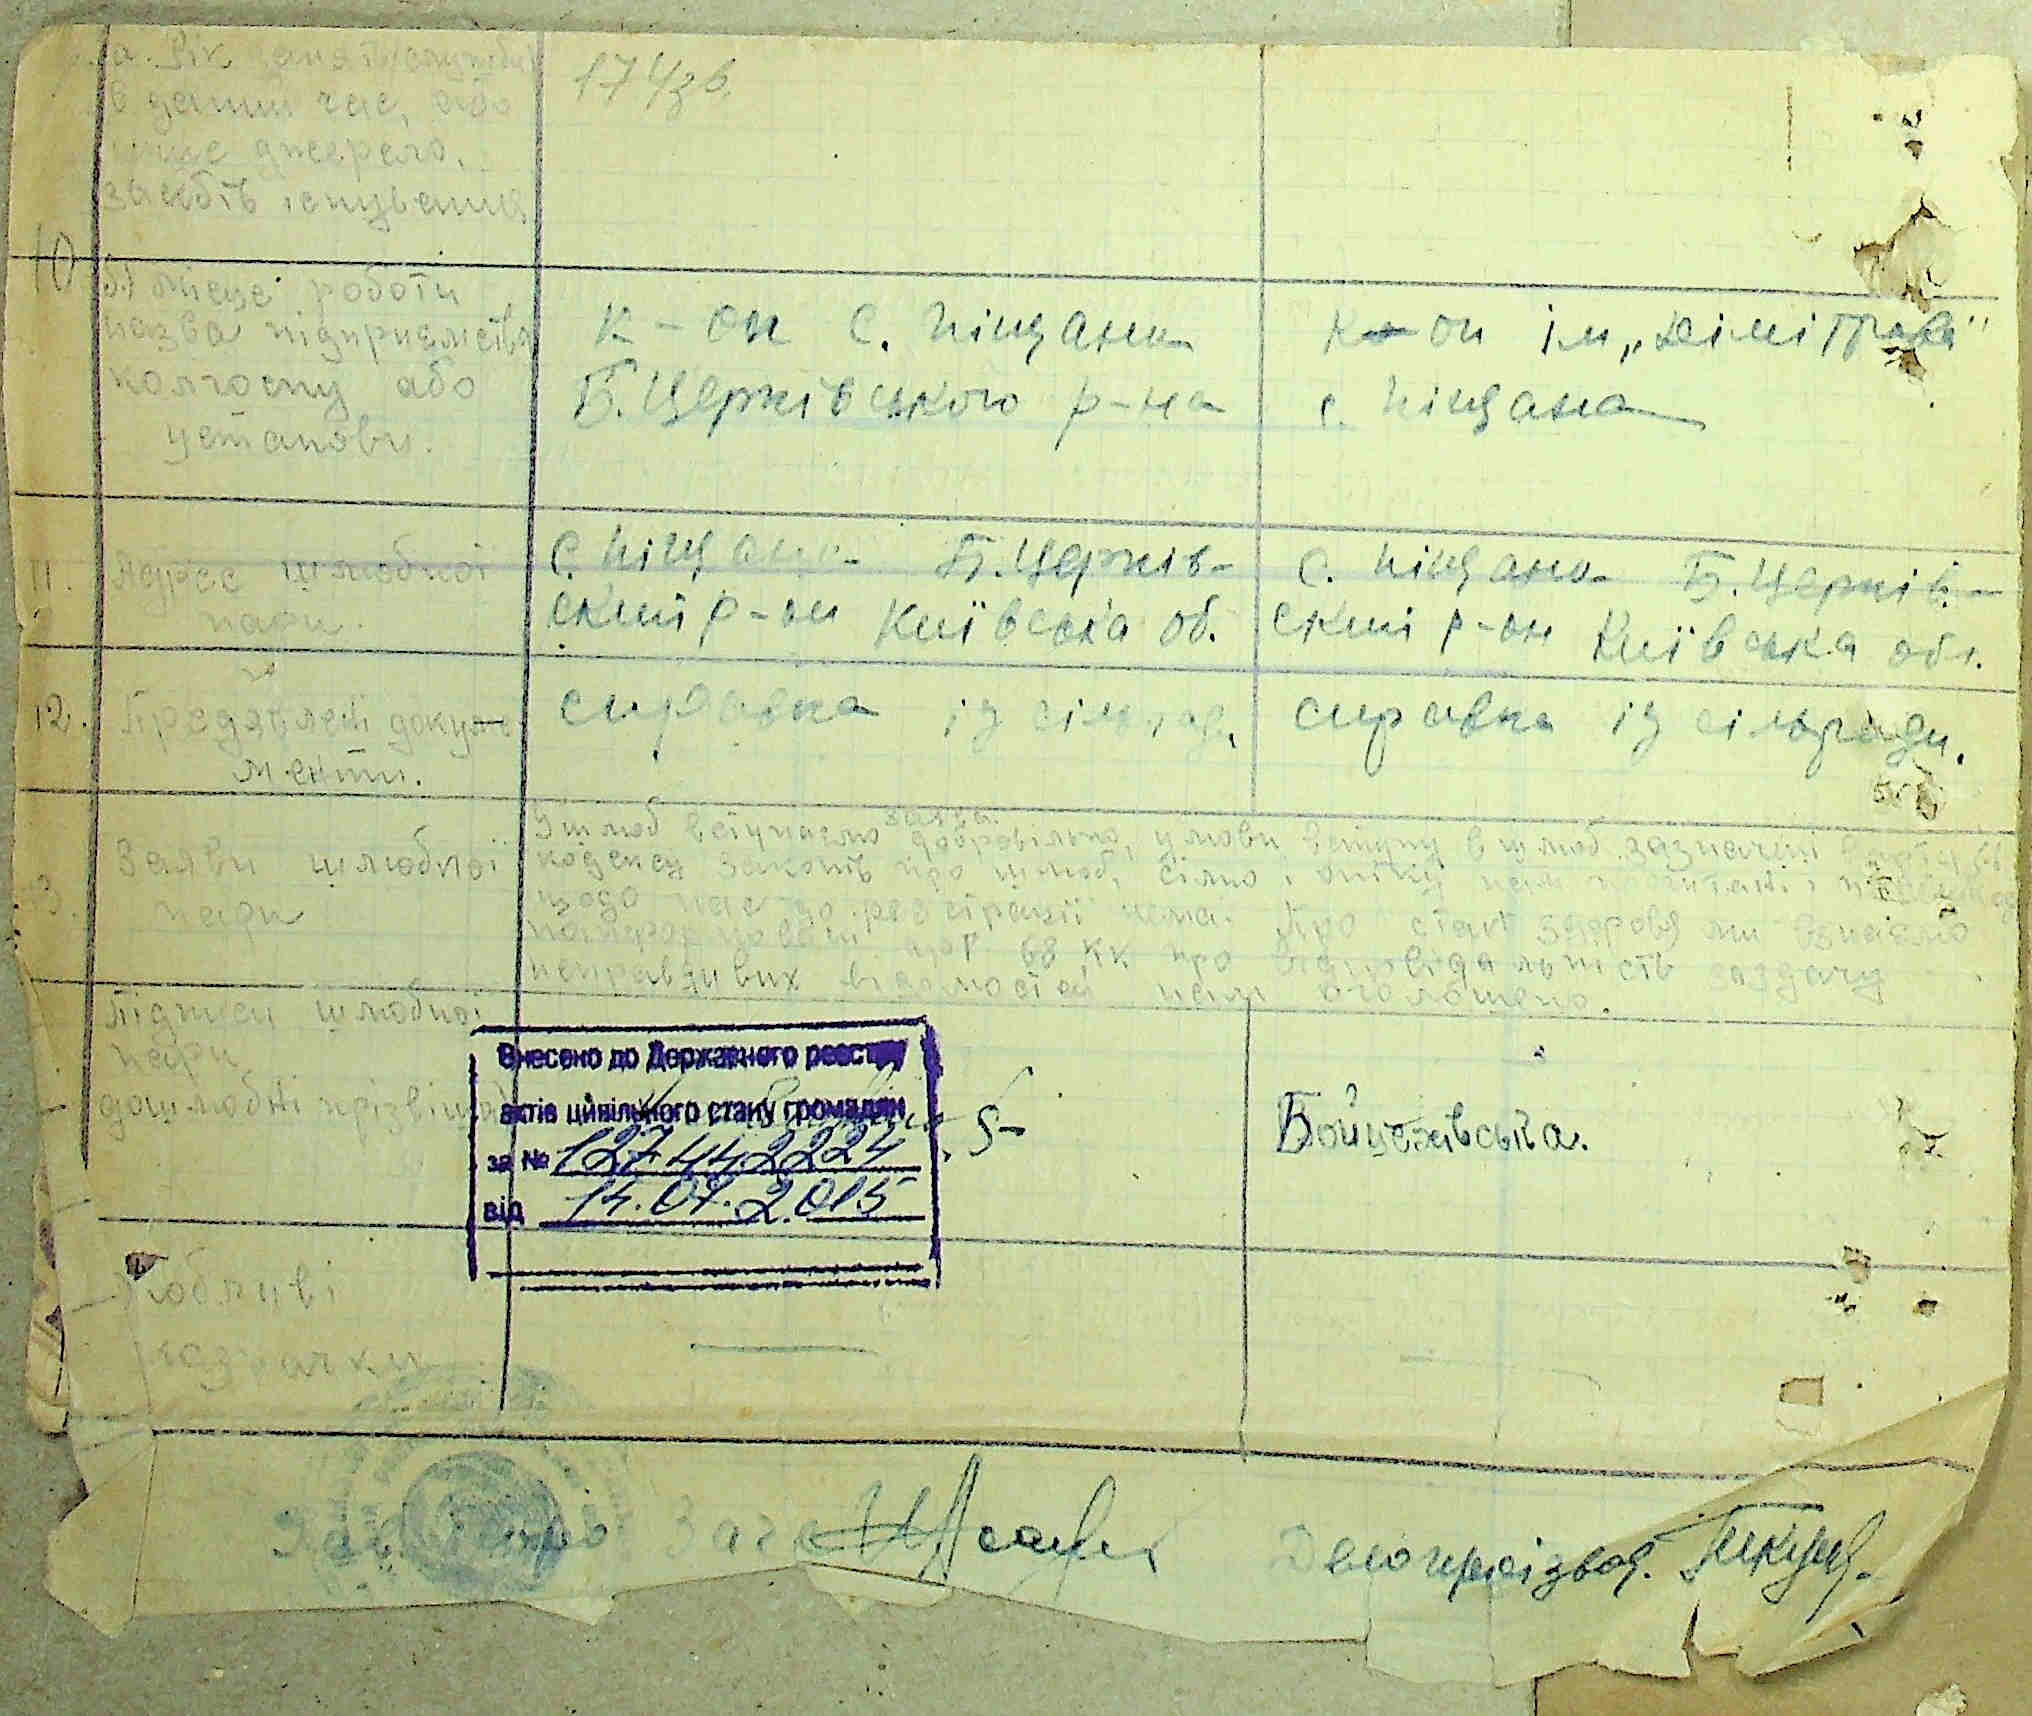 а. Рік
в даний час, або
інше джерело,
засобів існування
174зв.
10
б) Місце роботи
назва підприємства
колгоспу або
установи.
к-он с. Піщана
Б. Церківського р-на
к-он ім „Дімітрова"
с. Піщана
11. Адрес шлюбної
пари.
с. Піщана Б. Церків-
ский р-он Київська об.
с. Піщана Б. Церків-
ский р-он Київська обл.
12. Предявлені доку-
менти.
справка із сільрад.
справка із сільради.
3. Заяви шлюбної
пари
заява.
У шлюб вступаємо добровільно, умови вступу в шлюб зазначені
кодексу законів про шлюб, сімю і опіку нам прочитані і
щодо нас до реєстрації нема. Про стан здоровя ми взаємно
поінформовані. 68 КК про відповідальність за здачу
неправдивих відомостей нам оголошено.
Підписи шлюбної
пари
дошлюбні прізвища
Внесено до Державного реєстру
актів цивільного стану громадян
за № 12744 2224
від 14.07.2015
Бойцехівська.
Особливі
зазначки
Зав. Загс
Діловиразвод.